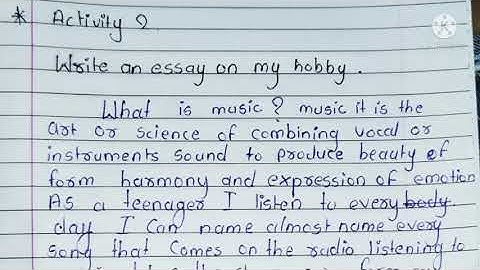 * Activity 2
Write an essay on my hobby.
What is music? music it is the
art or science of combining vocal or
instruments sound to produce beauty of
form harmony and expression of emotion
As a teenager I listen to every body
day I can name almost name every
song that comes on the radio listening to